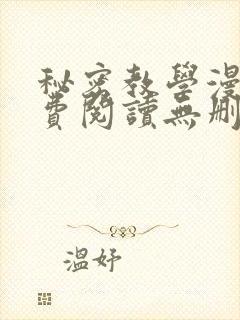 秘密教學漫
費閱讀無刪
溫妤